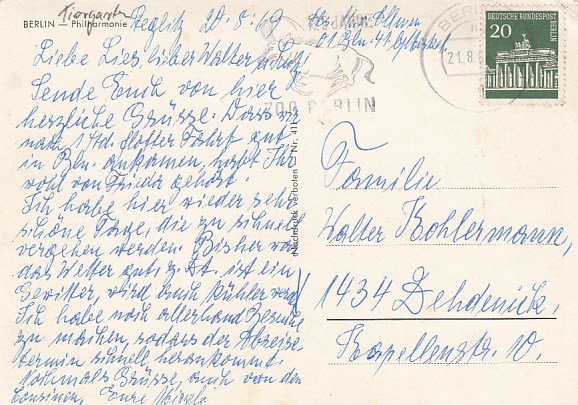 Tiergarten
BERLIN — Philharmonie
Steglitz 20.8.69
Liebe Lies, lieber Walter
Sende Euch von hier
herzliche Grüsse. Dass wir
nach 1 Std. flotter Fahrt gut
in Bln. ankamen, habt Ihr
wohl von Frieda gehört.
Ich habe hier wieder sehr
schöne Tage, die zu schnell
vergehen werden. Bisher war
das Wetter gut, z. Zt. ist ein
Gewitter, wird auch kühler
Ich habe noch allerhand Besuche
zu machen, sodass der Abreise-
termin schnell herankommt.
Nochmals Grüsse, auch von den
Cousinen, Eure
1 Bln. 41
BERLIN
21.8.
ZOO BERLIN
DEUTSCHE BUNDESPOST
BERLIN
20
Nachdruck verboten — Nr. 411
Familie
Walter Kohlermann,
1434 Zehdenick,
Kapellenstr. 10.